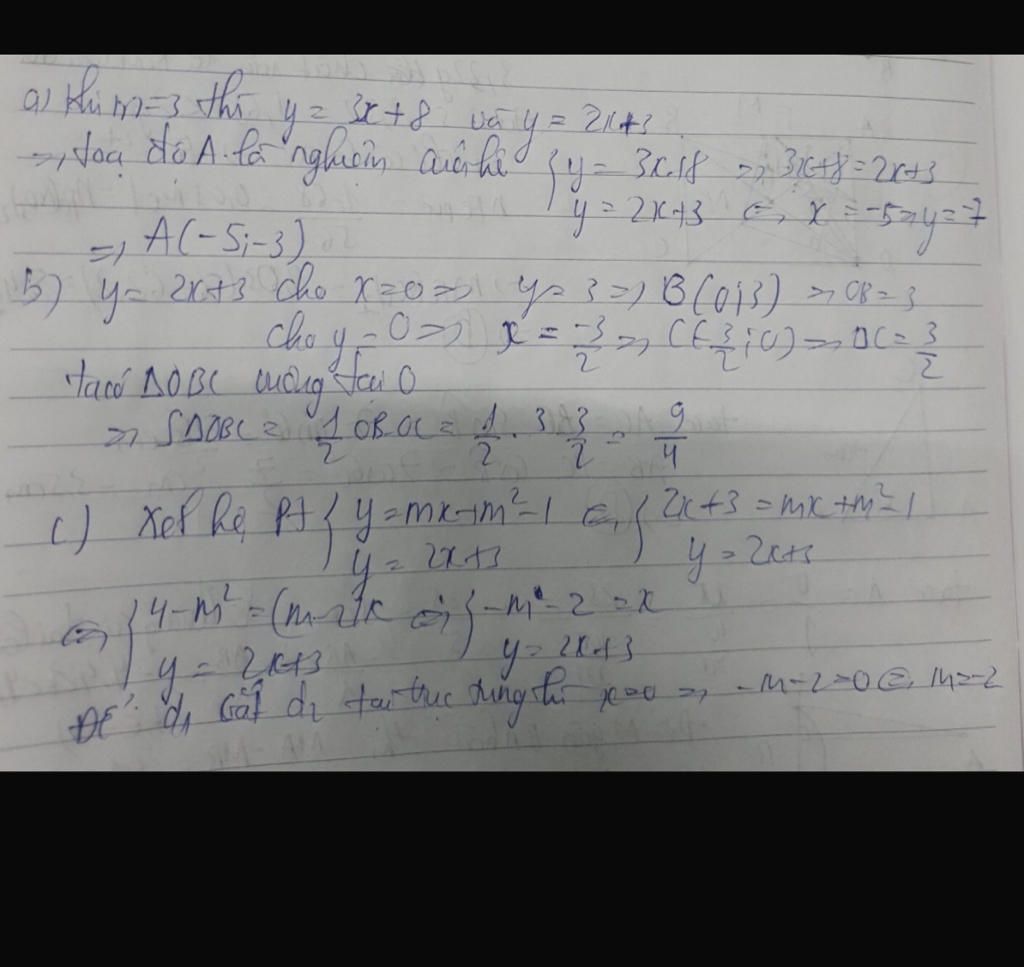 a) Khi m=3 thì y = 3x+8 và y = 2x+3
=> toạ độ A là nghiệm của hệ { y = 3x+8 => 3x+8=2x+3
y = 2x+3 <=> x = -5 => y = -7
=> A(-5;-3)
b) y = 2x+3 cho x=0 => y = 3 => B(0;3) => OB = 3
cho y = 0 => x = -3/2 => C(-3/2;0) => OC = 3/2
ta có ΔOBC vuông tại O
=> SΔOBC = 1/2 OB.OC = 1/2 . 3 3/2 = 9/4
c) Xét hệ PT { y=mx+m²-1 <=> { 2x+3 = mx+m²-1
y = 2x+3 y = 2x+3
<=> { 4-m² = (m-2)x <=> { -m-2 = x
y = 2x+3 y = 2x+3
Để d₁ cắt d₂ tại trục tung thì x=0 => -m-2=0 <=> m=-2